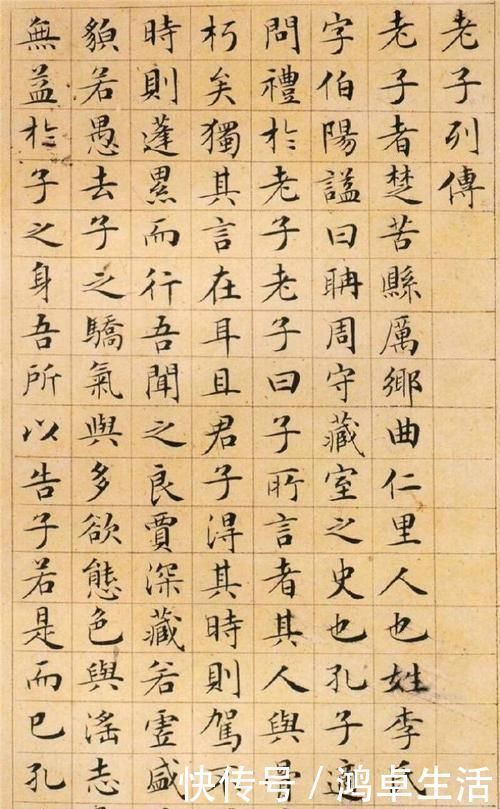 老子列傳
老子者楚苦縣厲鄉曲仁里人也姓李氏
字伯陽謚曰聃周守藏室之史也孔子適
問禮於老子老子曰子所言者其人與骨
朽矣獨其言在耳且君子得其時則駕不
時則蓬累而行吾聞之良賈深藏若虛盛
貌若愚去子之驕氣與多欲態色與淫志
無益於子之身吾所以告子若是而已孔
快传号 / 鸿卓生活